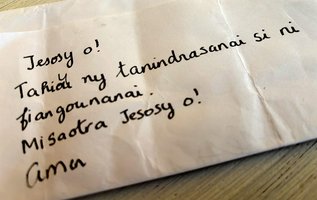 Jesosy o!
Tahidi ny tanindrasanai si ni
fiangounanai.
Misaotra Jesosy o!
Amen